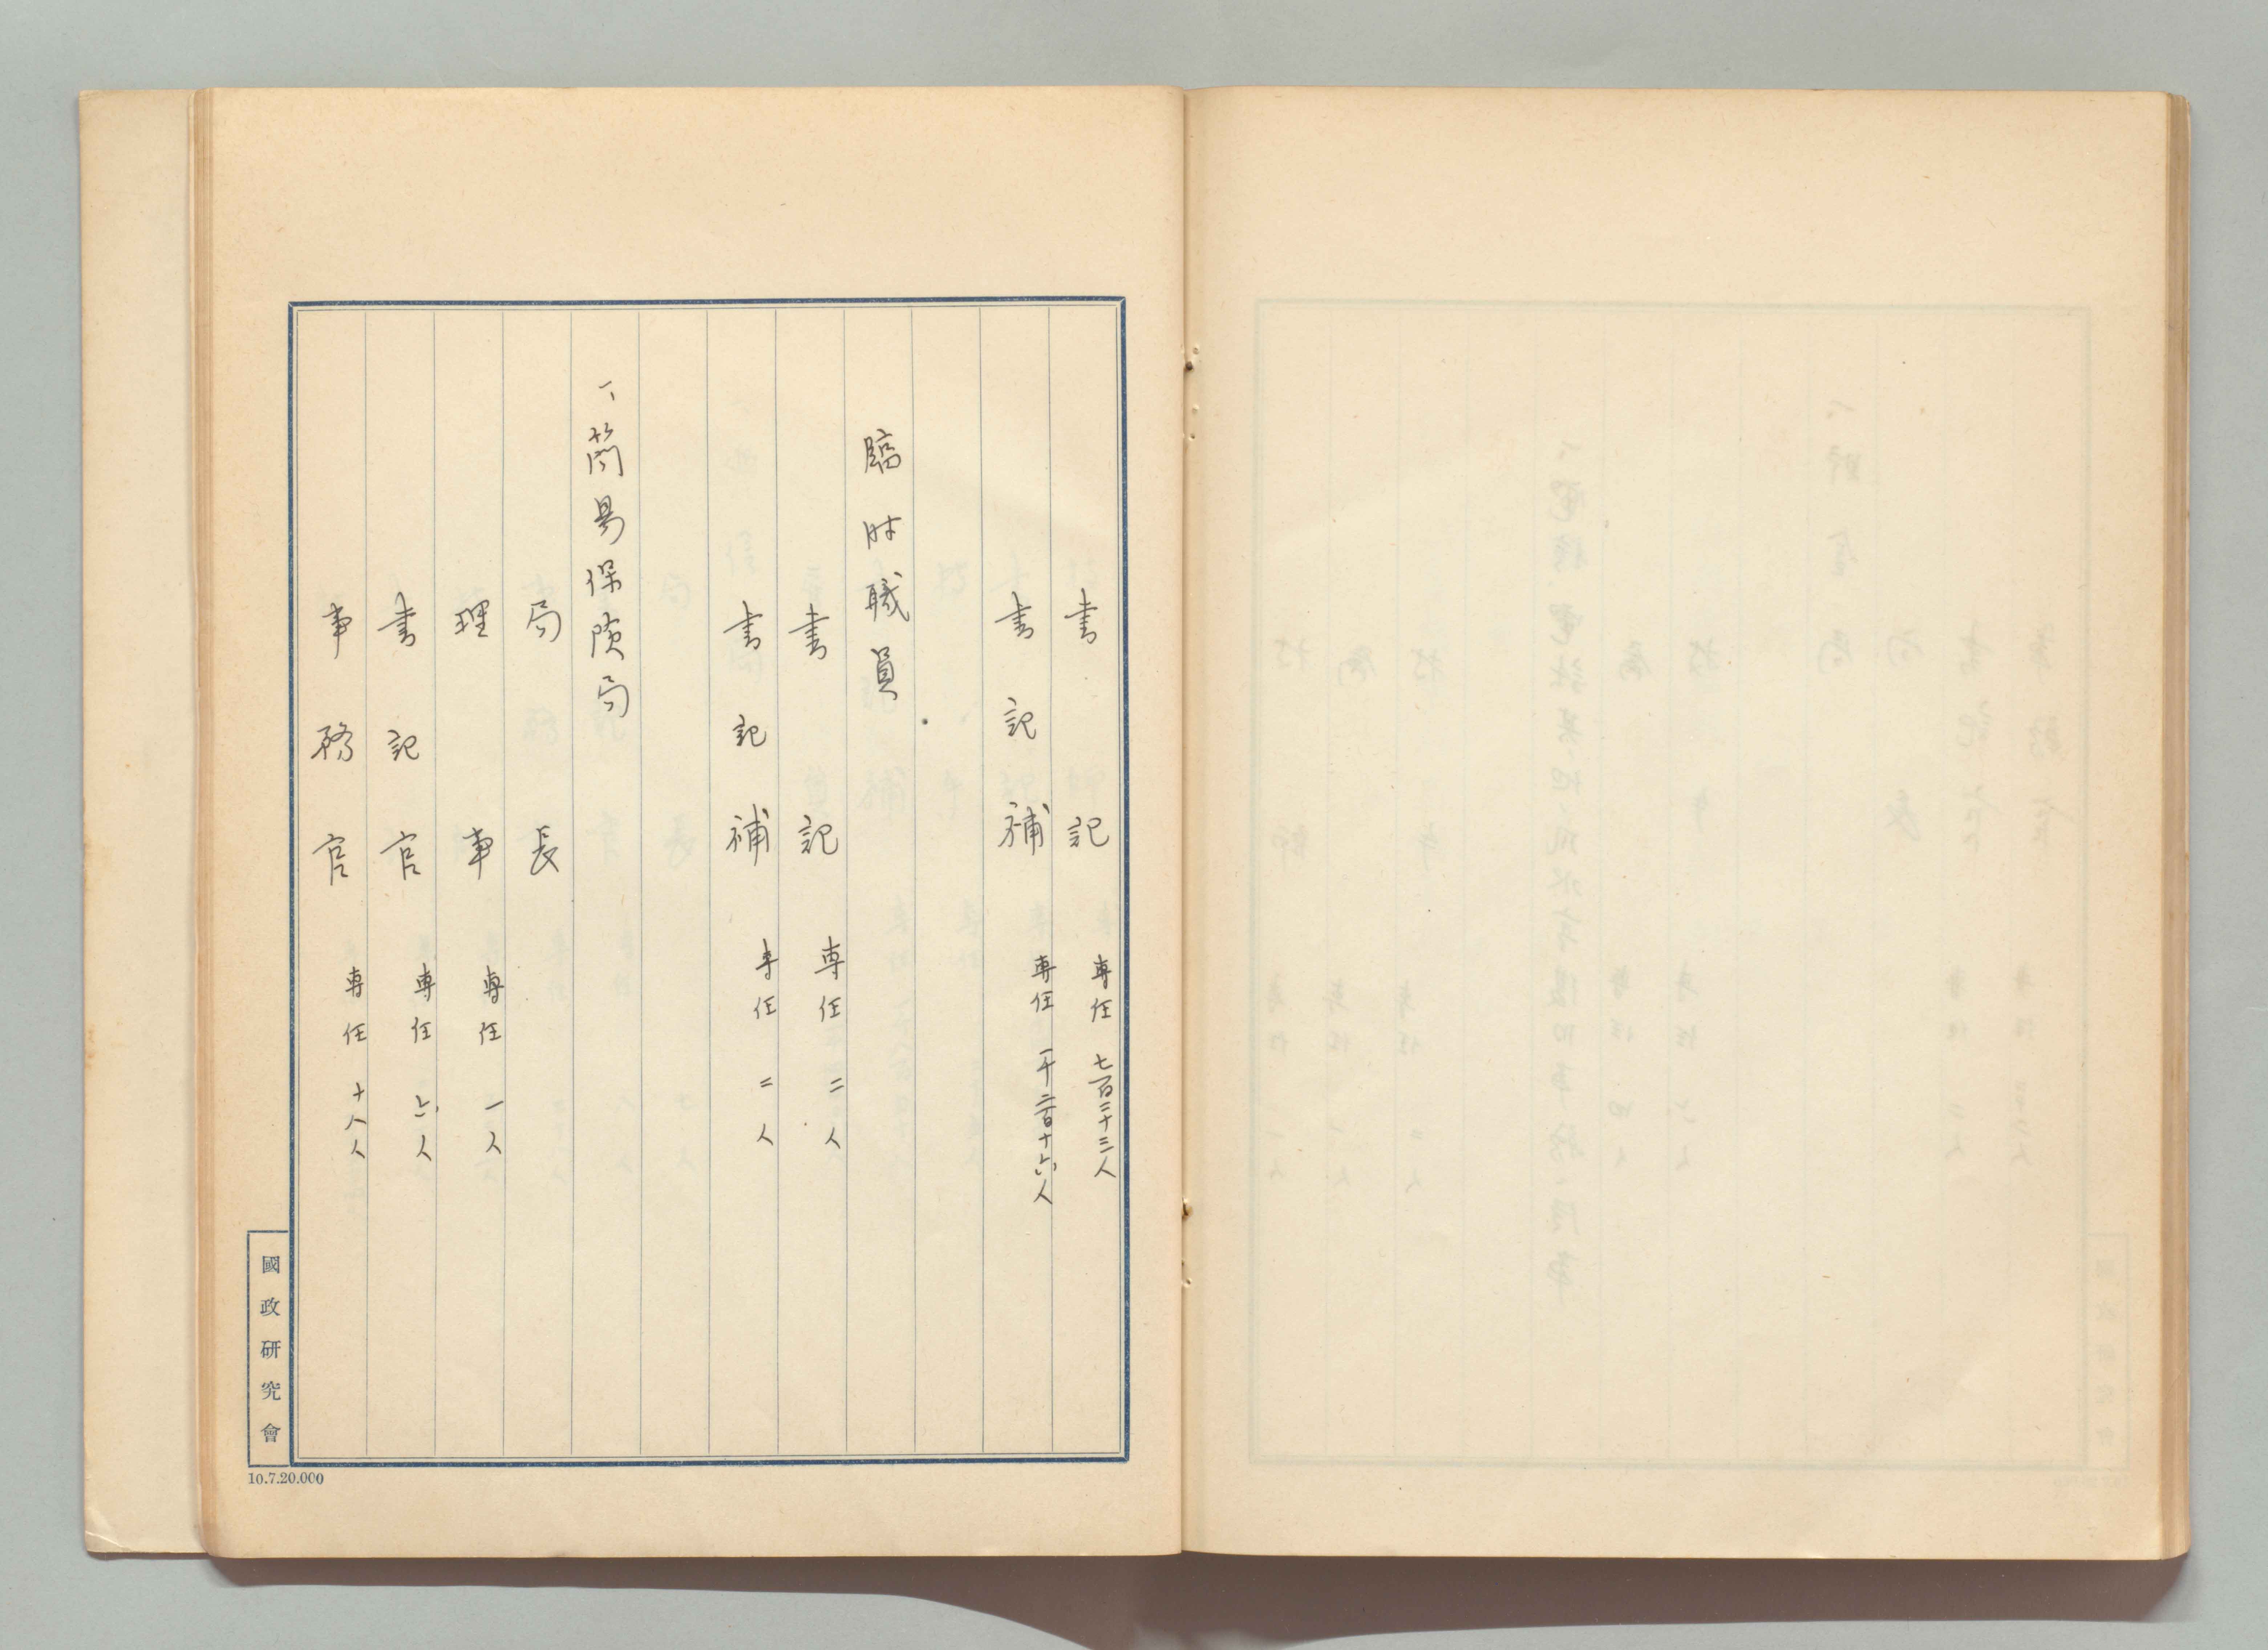 書記 専任 七百二十三人
書記補 専任 一千二百十六人
臨時職員
書記 専任 二人
書記補 専任 二人
一、簡易保険局
局長
理事 専任 一人
書記官 専任 六人
事務官 専任 十八人
國政研究會
10.7.20.000